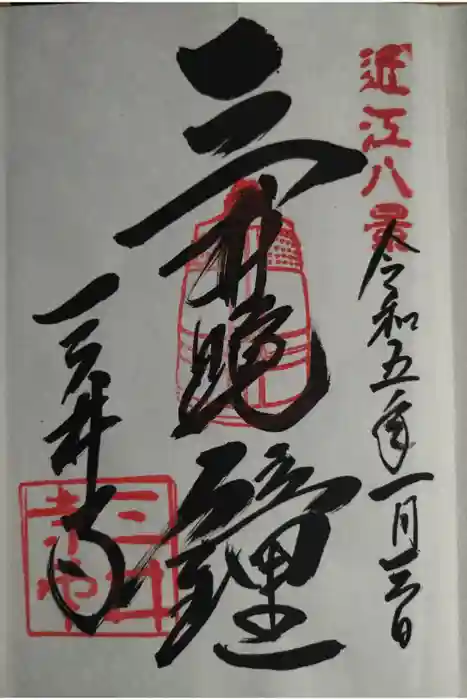 近江八景
令和五年一月三日
三井晩鐘
三井寺
三井寺印